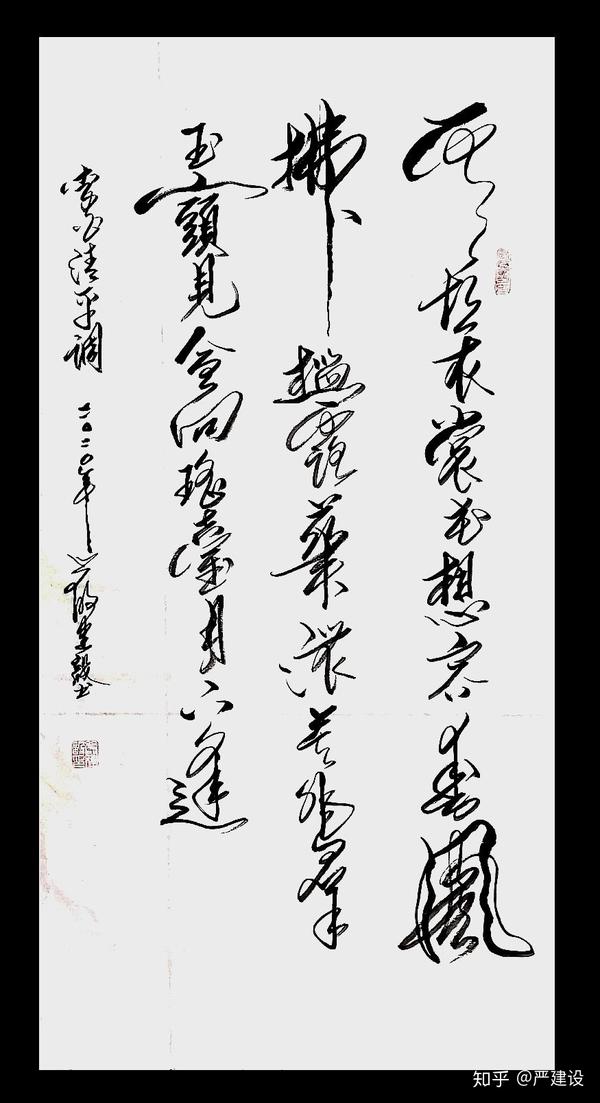 雲想衣裳花想容春風
拂檻露華濃若非群
玉山頭見會向瑤臺月下逢
李白清平調 二〇二〇年
知乎 @严建设